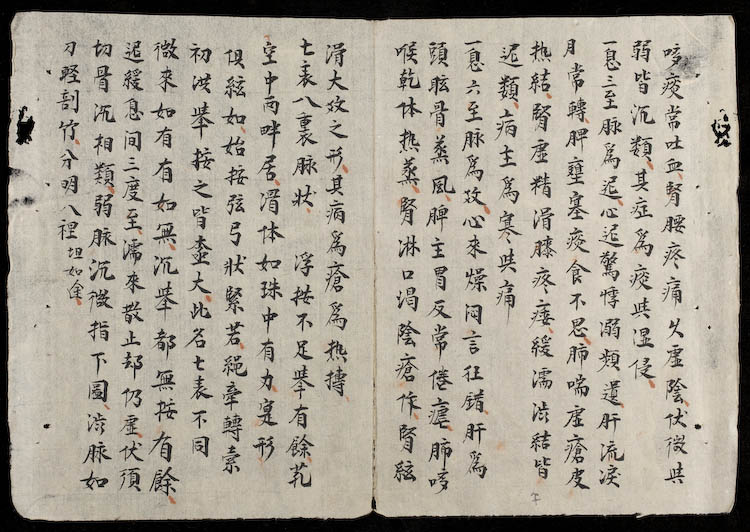 咳痰常吐血腎腰疼痛久虛陰伏微與
弱皆沉類其症為痰與湿侵
一息三至脉為迟心迟驚悸溺類遺肝流淚
月常轉脾壅塞痰食不思肺喘虛瘡皮
热結腎虛精滑膝疼痿緩濡澁結皆
迟類病主為寒與痛
一息六至脉為攻心來燥闷言狂錯肝為
頭眩骨蒸風脾主胃反常倦瘧肺咳
喉乾体热蒸腎淋口渴陰瘡作腎絃
滑大攻之形其病為瘡為热搏
七表八裏脉状 浮按不足舉有餘芤
空中两畔居滑体如珠中有力寔形
俱絃如始按弦弓状緊若繩牽轉索
初洪舉按之皆盍大此名七表不同
微來如有有如無沉舉都無按有餘
迟緩息间三度至濡來散止却仍虛伏須
切骨沉相類弱脉沉微指下圖澁脉如
刀輕剖竹分明八裡坦如途